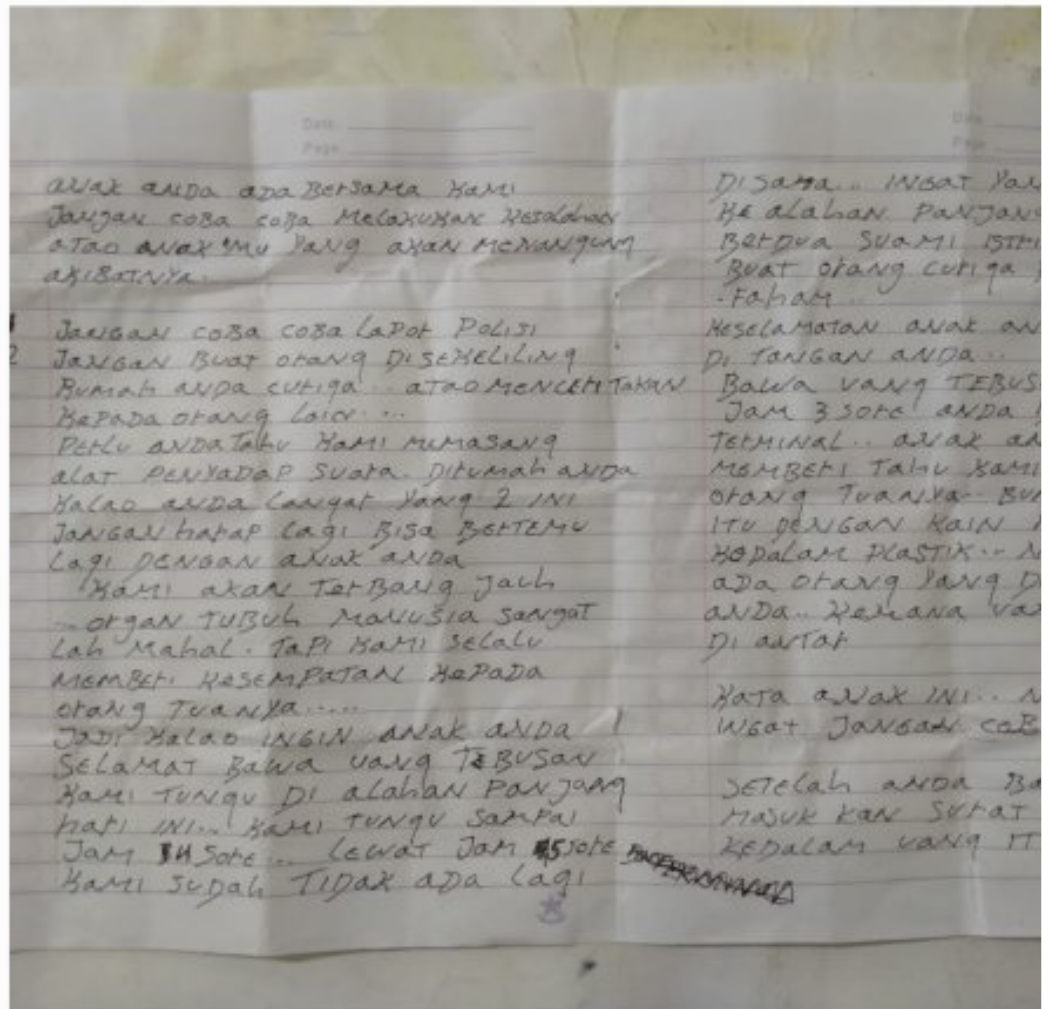 Date
Page
anak anda ada bersama kami
Jangan coba coba melakukan kesalahan
atao anak mu yang akan menangung
akibatnya.
Jangan coba coba lapor polisi
2 Jangan buat orang disekeliling
rumah anda curiga.. atao menceritakan
kepada orang lain....
Perlu anda tahu kami memasang
alat penyadap suara. dirumah anda
kalao anda langar yang 2 ini
Jangan harap lagi bisa bertemu
lagi dengan anak anda
kami akan terbang jauh
.. organ tubuh manusia sangat
lah mahal. tapi kami selalu
memberi kesempatan kepada
orang tuanya.....
Jadi kalao ingin anak anda
selamat bawa uang tebusan
kami tungu di alahan panjang
hari ini.. kami tungu sampai
Jam sore... lewat jam 5 sore
kami sudah tidak ada lagi
Page
disana... ingat yan
ke alahan panjang
berdua suami istri
buat orang curiga
-faham..
keselamatan anak an
di tangan anda..
bawa uang tebus
Jam 3 sore anda
terminal.. anak an
memberi tahu kami
orang tuanya..
itu dengan kain
kedalam plastik..
ada orang yang d
anda.. kemana ua
di antar
kata anak ini..
ingat jangan cob
setelah anda ba
masuk kan surat
kedalam uang it